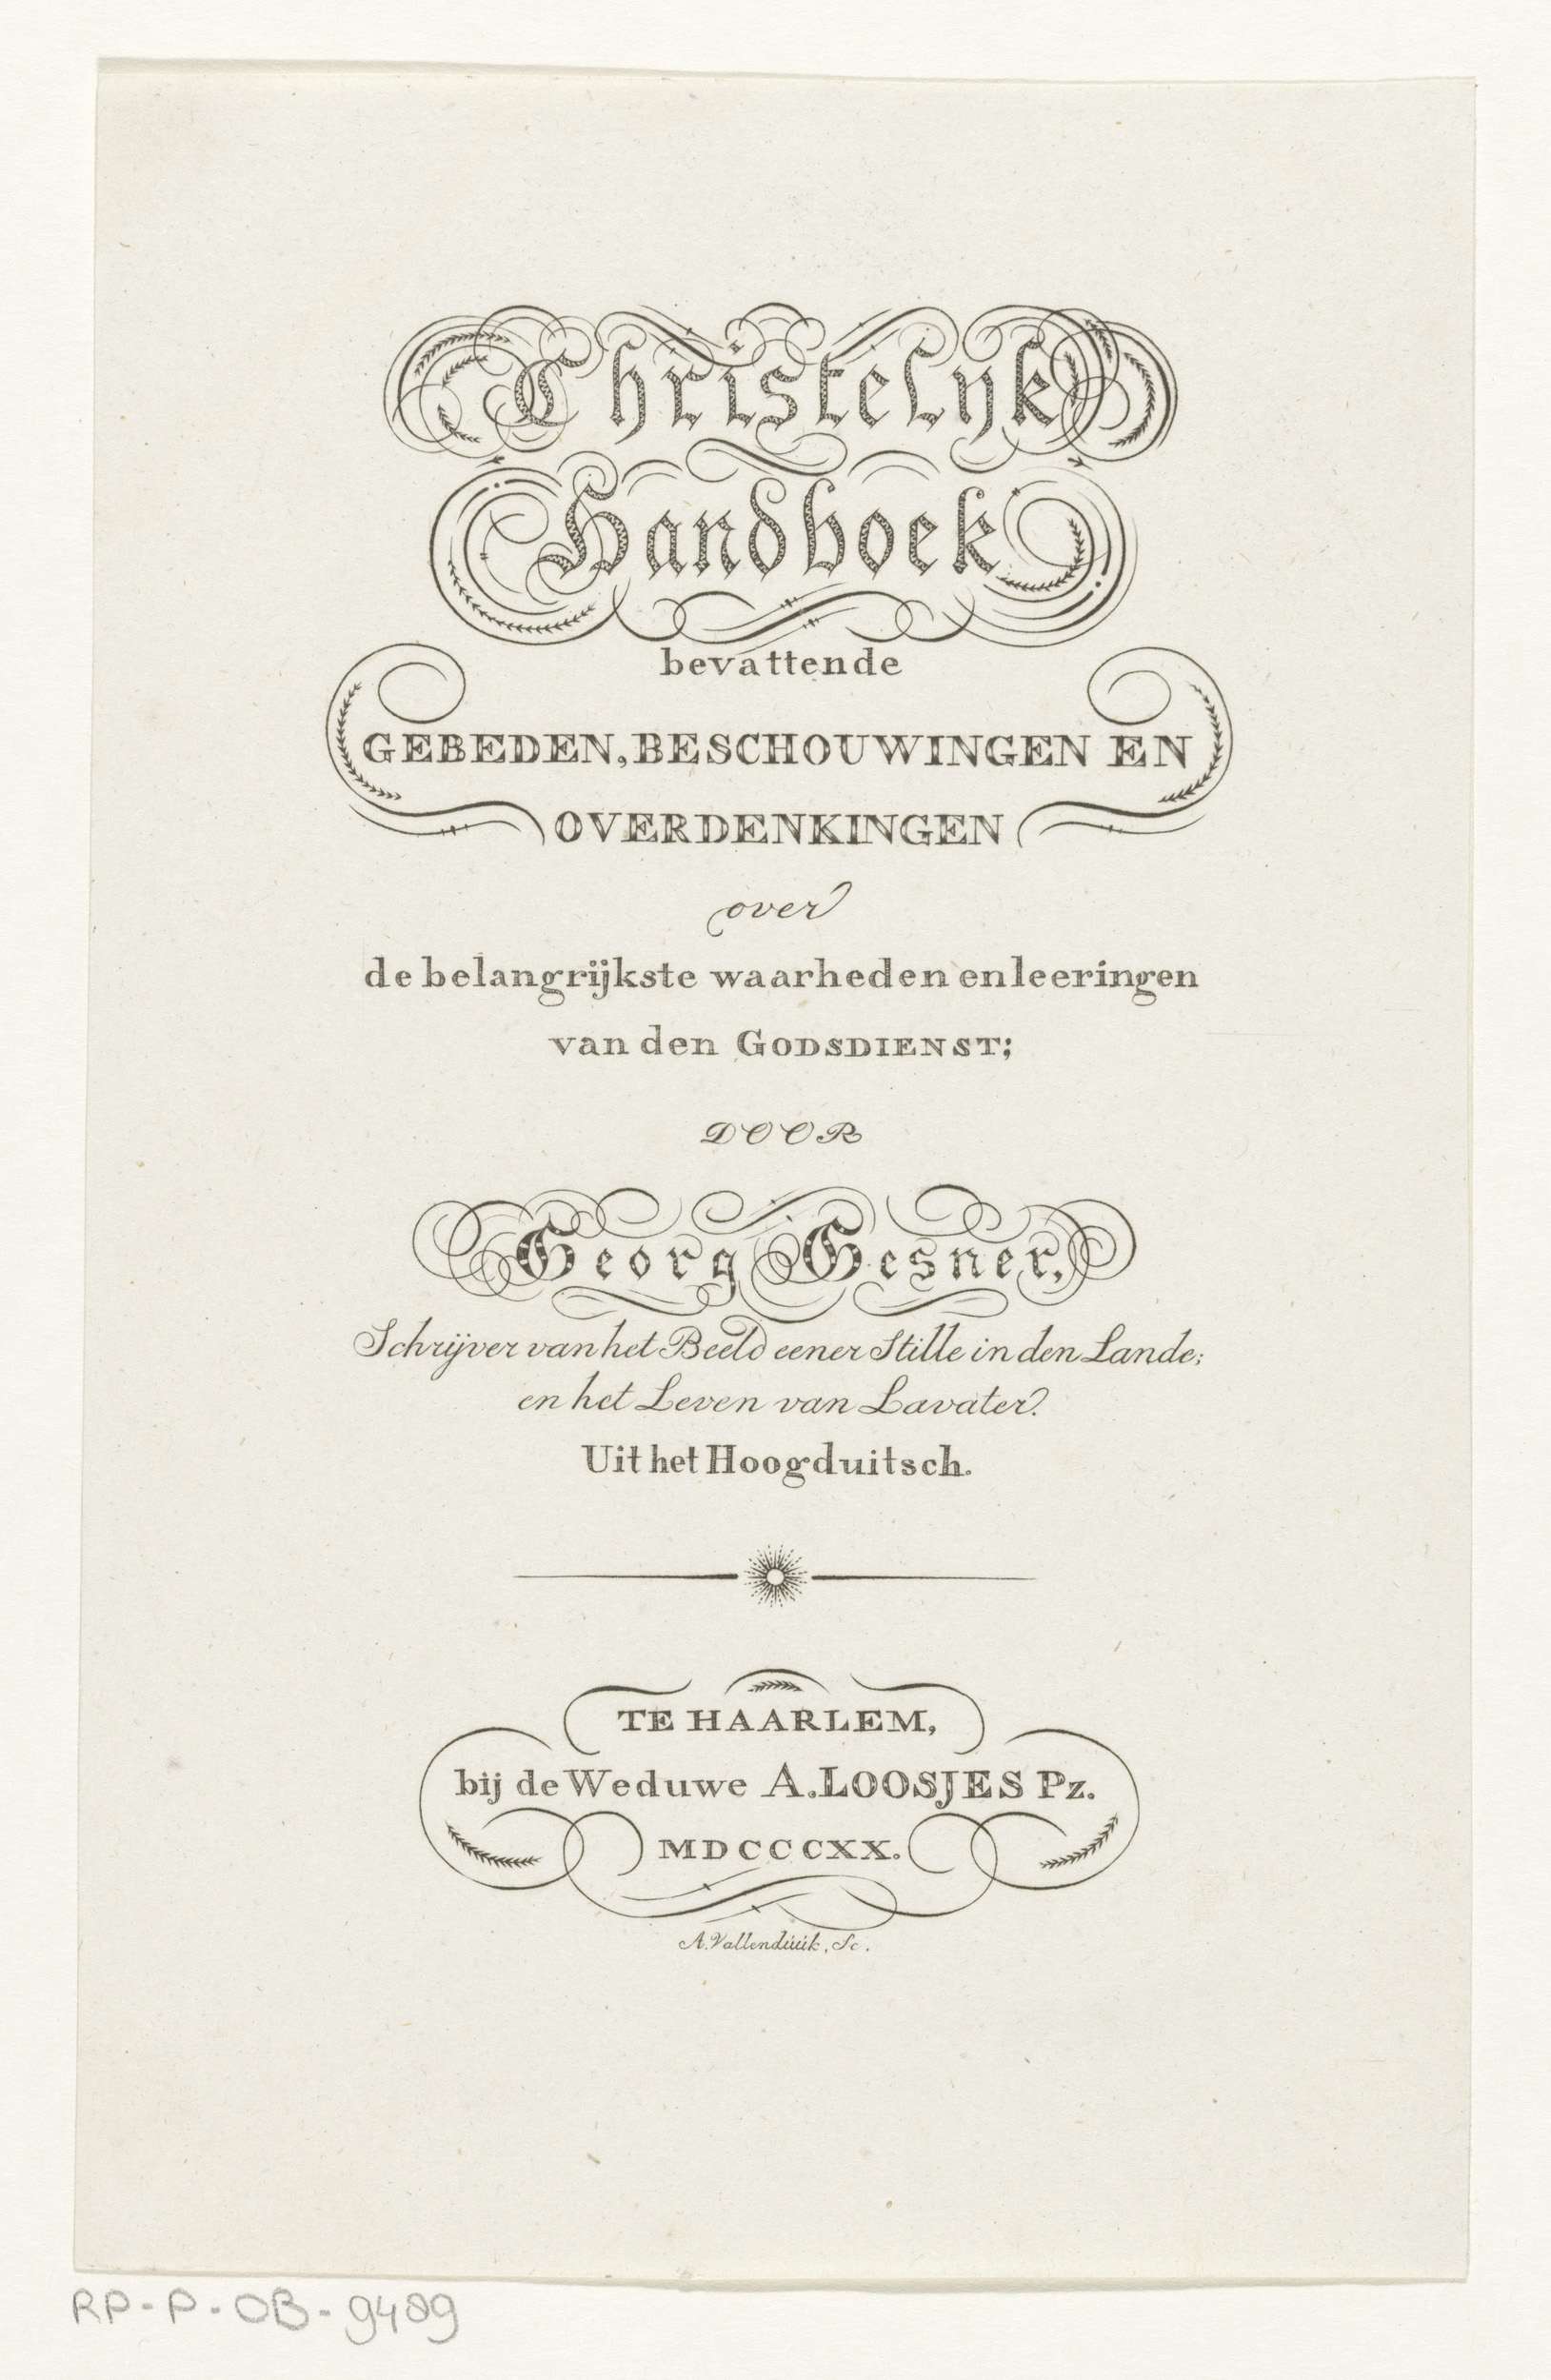 Christelijk
Handboek
bevattende
GEBEDEN, BESCHOUWINGEN EN
OVERDENKINGEN
over
de belangrijkste waarheden en leeringen
van den GODSDIENST;
DOOR
Georg Gesner,
Schrijver van het Beeld eener Stille in den Lande;
en het Leven van Lavater.
Uit het Hoogduitsch.
TE HAARLEM,
bij de Weduwe A. LOOSJES Pz.
MDCCCXX.
A. Vallenduuk, Sc.
RP-P-OB-9489